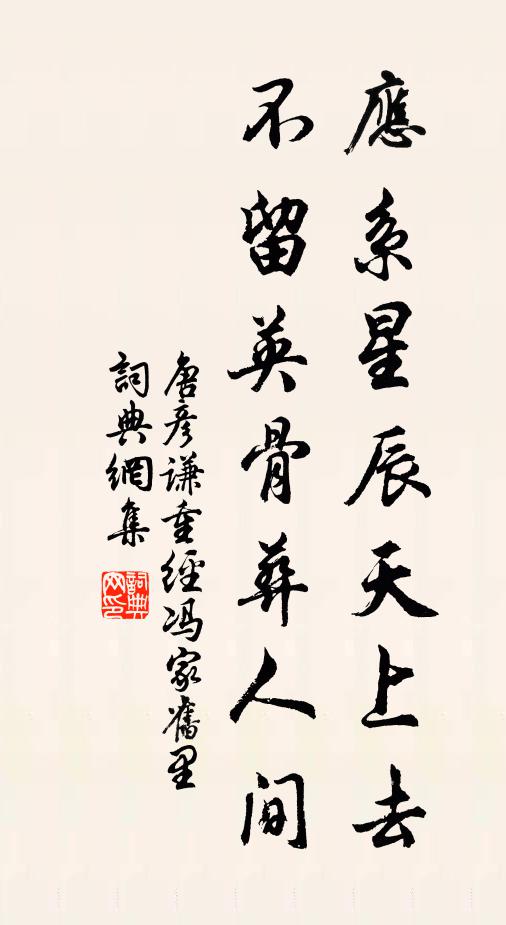 應系星辰天上去
不留英骨葬人間
唐彥謙重經冯家舊里
詞典網集
詞典网印